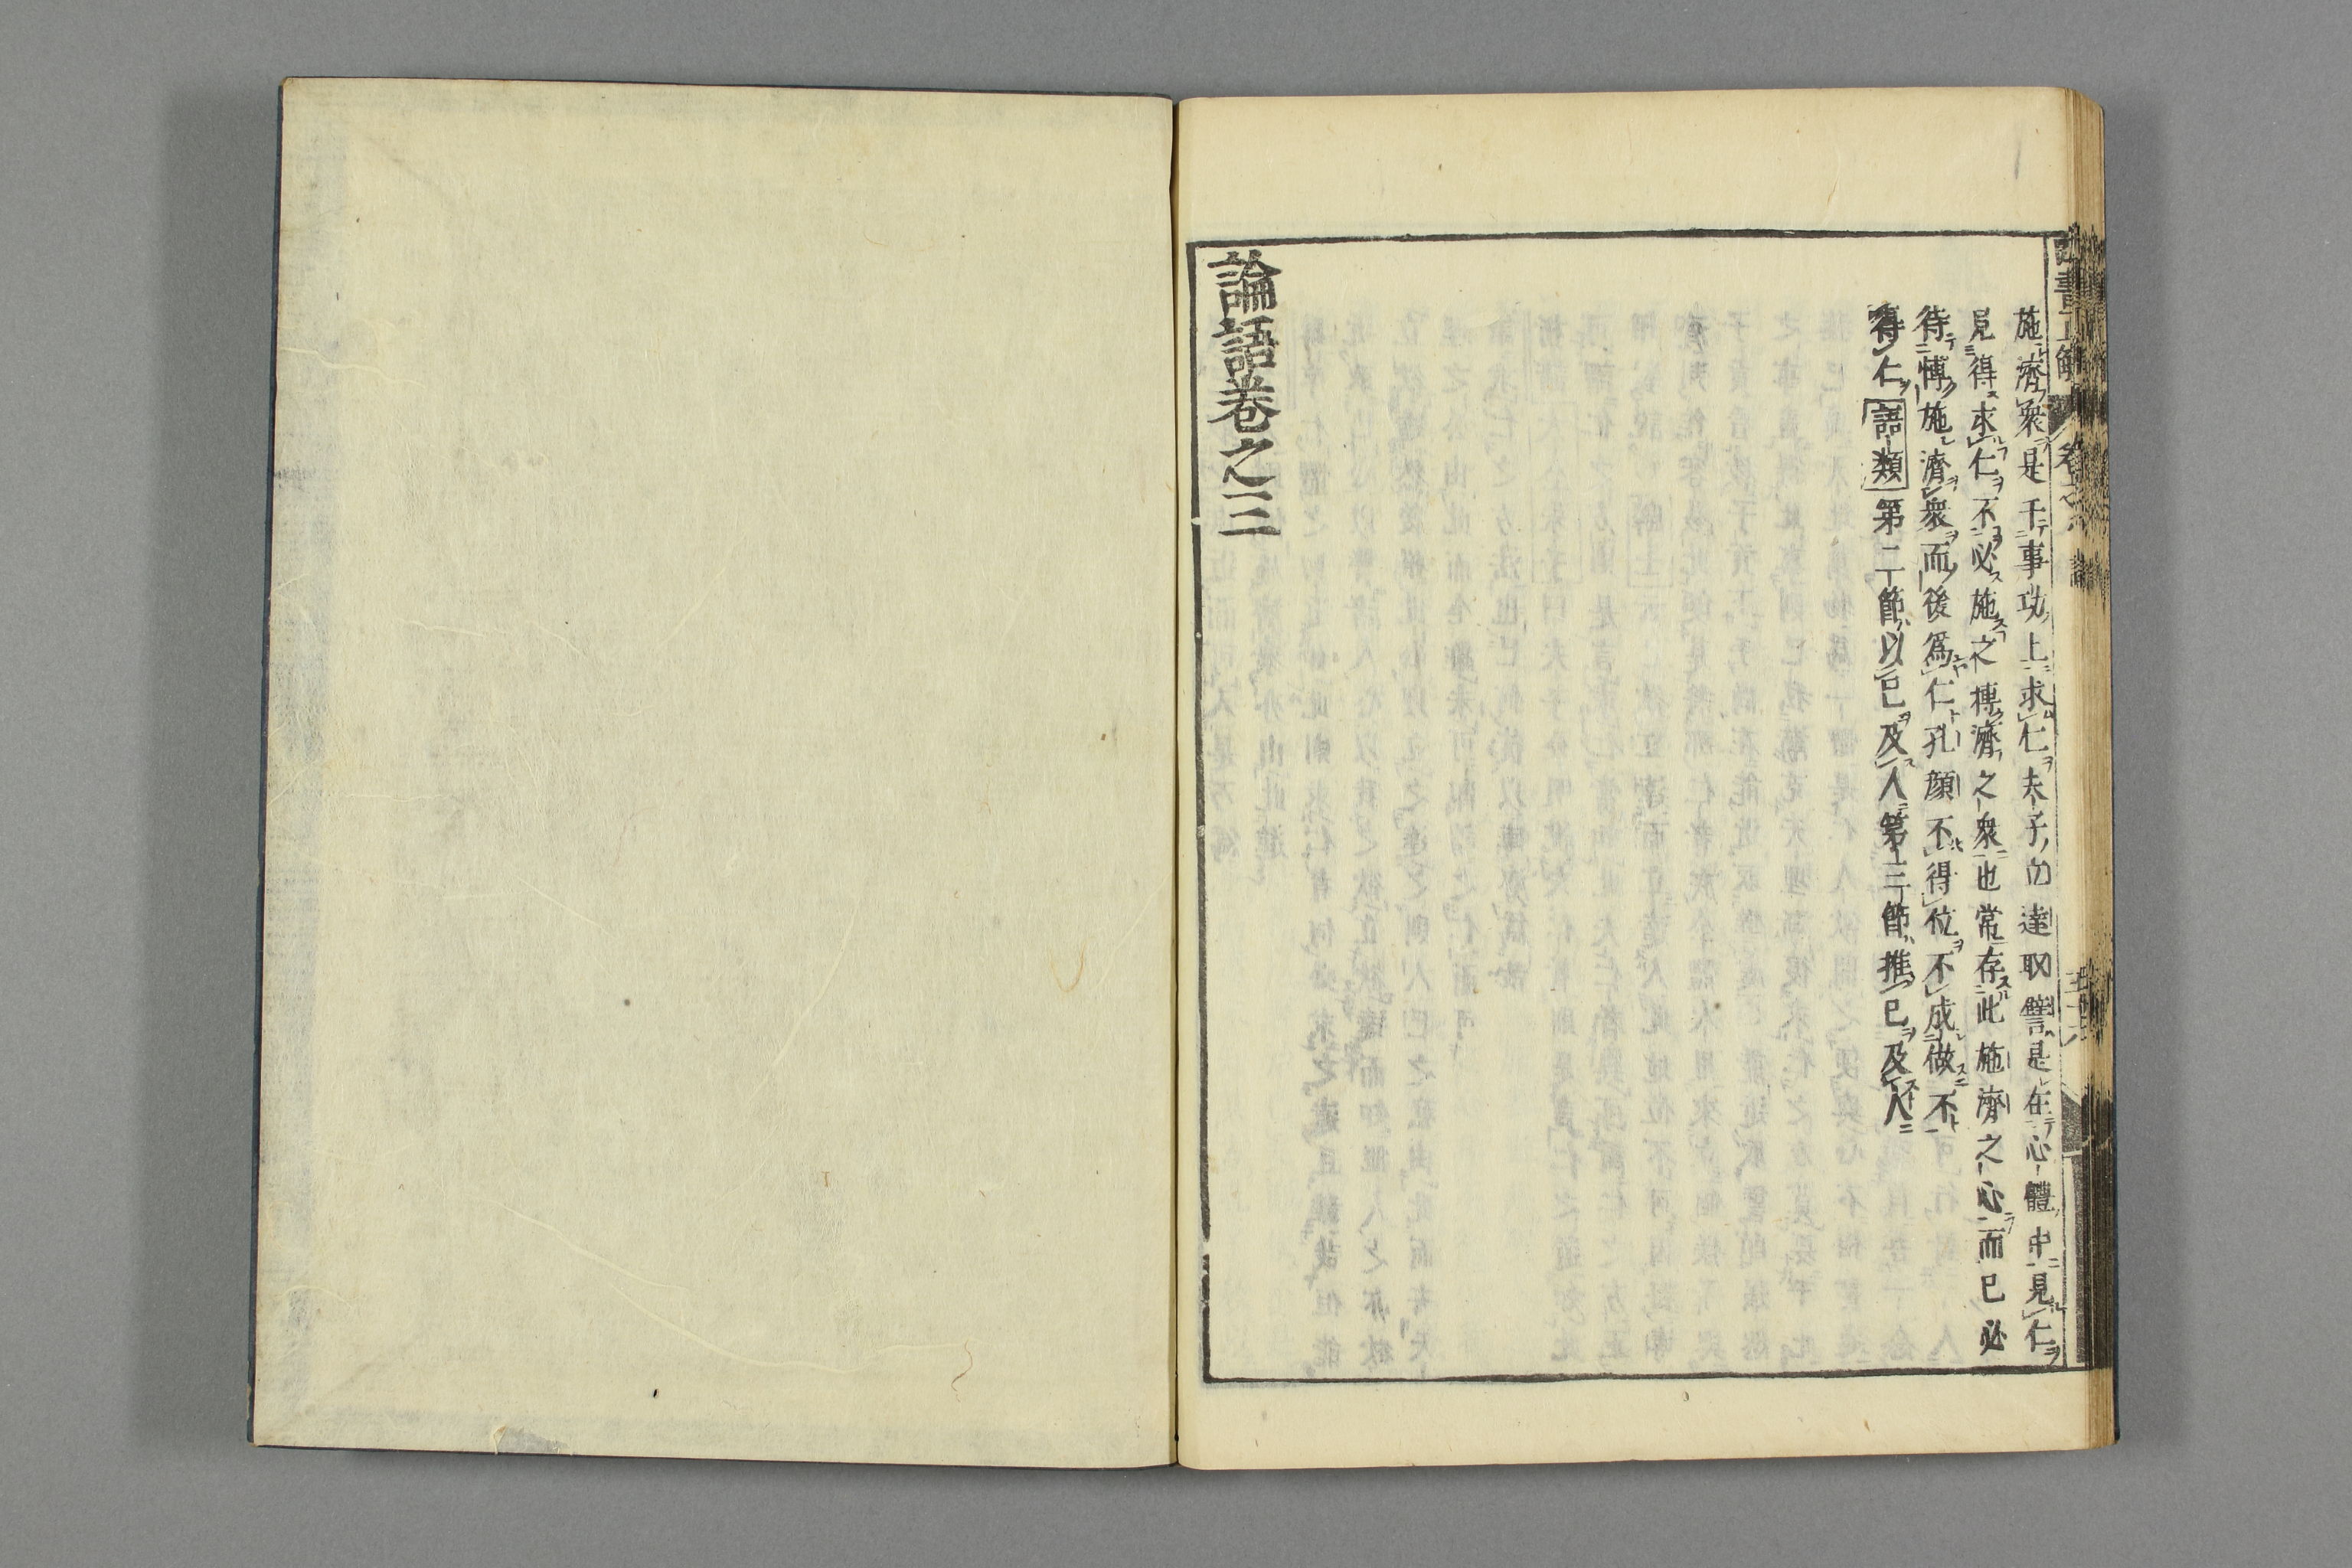 施濟衆是干事功上求仁夫子曰達取譬是在心體中見仁
見得求仁不必施之博濟之衆也常存此施濟之心而已必
待博施濟衆而後爲仁孔顔不得位不成做不
得仁語類第二節以己及人第三節推己及人
論語卷之三